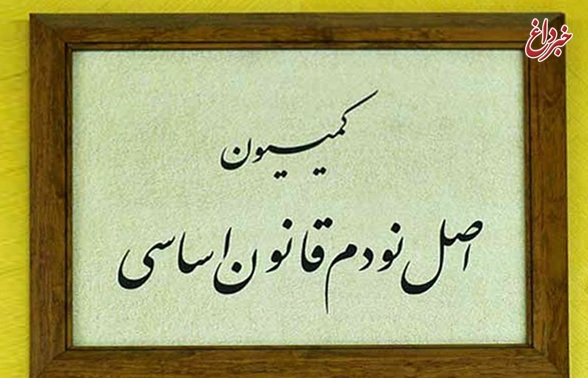 خبرداغ
کمیسیون
اصل نودم قانون اساسی